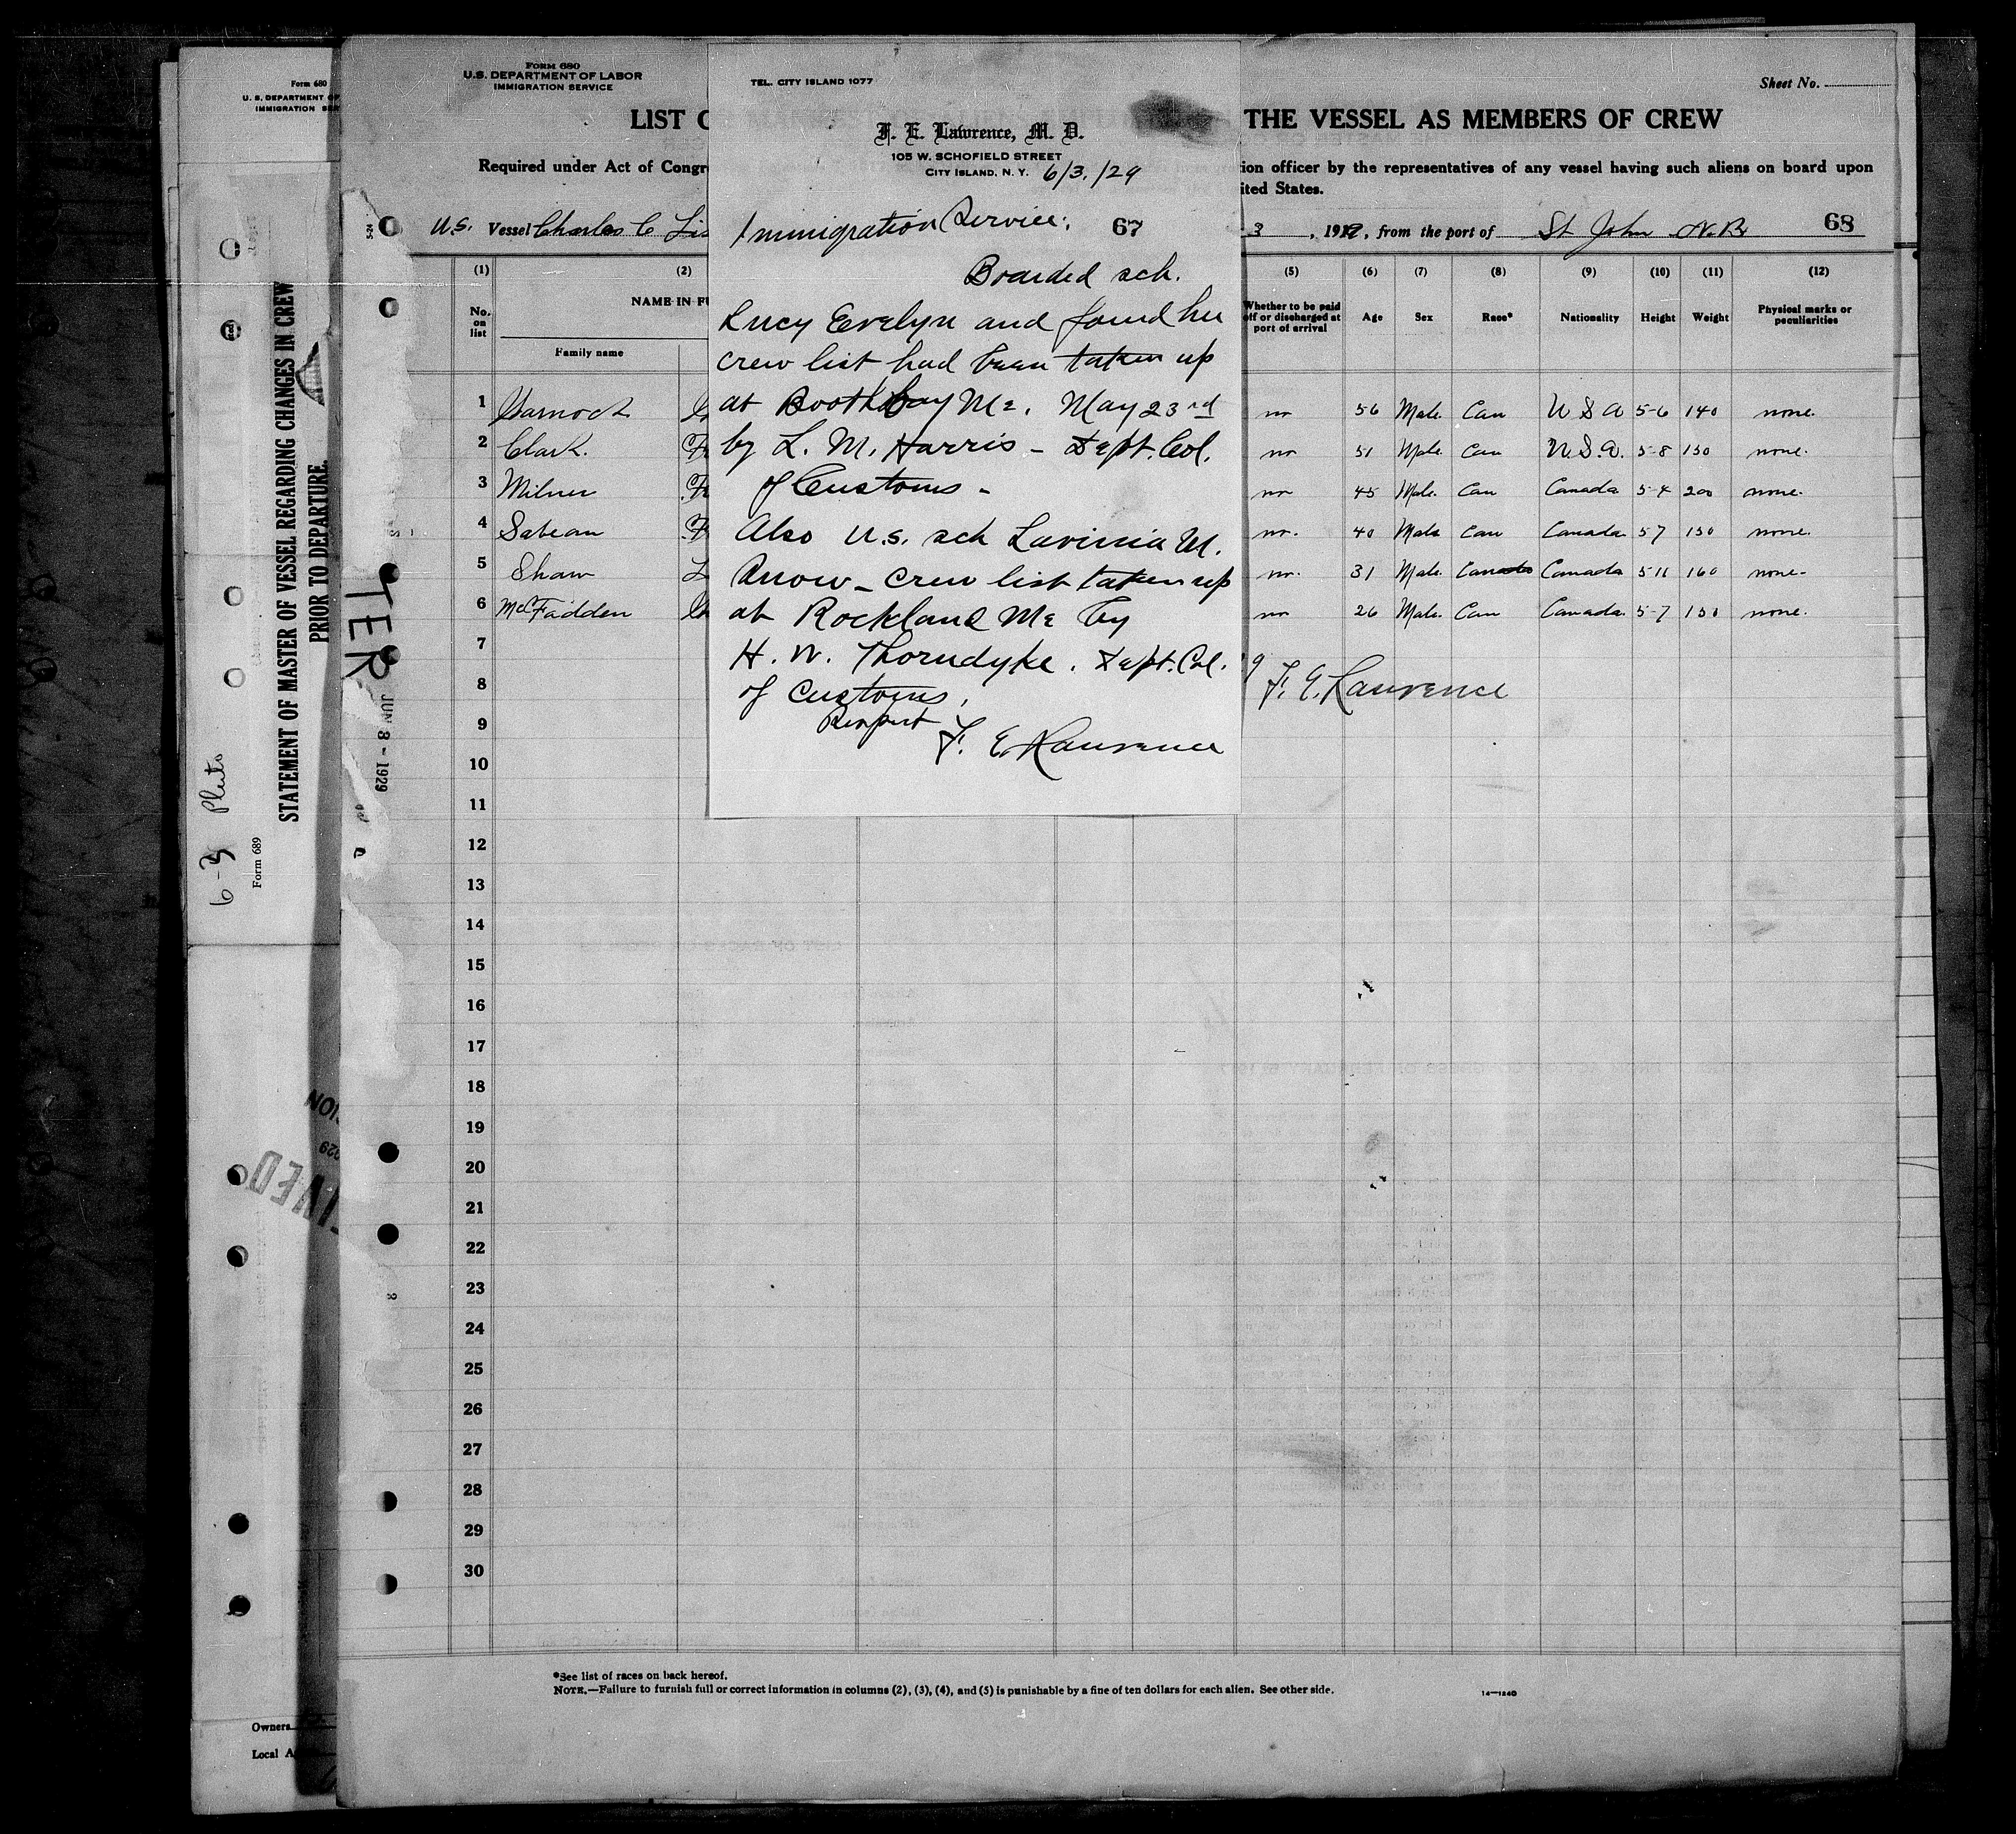 Form 680
U. S. DEPARTMENT OF
IMMIGRATION SER
STATEMENT OF MASTER OF VESSEL REGARDING CHANGES IN CREW
PRIOR TO DEPARTURE.
6-3 Pluto
Form 689
Owners
Local A
TER
JUN 8 - 1929
FORM 680
U.S. DEPARTMENT OF LABOR
IMMIGRATION SERVICE
Sheet No.
LIST O
THE VESSEL AS MEMBERS OF CREW
Required under Act of Congr
ion officer by the representatives of any vessel having such aliens on board upon
ited States.
U.S. Vessel Charles C Lis
3 , 19 , from the port of St John N.B. 68
TEL. CITY ISLAND 1077
F. E. Lawrence, M. D.
105 W. SCHOFIELD STREET
CITY ISLAND, N. Y. 6/3./29
Immigration Service; 67
Boarded sch.
Lucy Evelyn and found her
crew list had been taken up
at Boothbay Me. May 23rd
by L. M. Harris - Dept. Col.
of Customs -
Also U.S. sch Lavinia M.
Snow - crew list taken up
at Rockland Me by
H. W. Thorndyke. Dept. Col.
of Customs,
F. E. Lawrence
(1) (2) (5) (6) (7) (8) (9) (10) (11) (12)
No. on list
NAME IN FU
Family name
Whether to be paid off or discharged at port of arrival
Age Sex Race* Nationality Height Weight Physical marks or peculiarities
1 no 56 Male Can U S A 5-6 140 none.
2 Clark. no 51 Male Can U.S.A. 5-8 150 none.
3 Milner no 45 Male. Can Canada 5-4 200 none.
4 Sabean no. 40 Male Can Canada 5 7 150 none.
5 Shaw no. 31 Male. Can Canada 5-11 160 none-
6 McFadden no 26 Male. Can Canada. 5-7 150 none.
7
8 F. E. Lawrence
9
10
11
12
13
14
15
16
17
18
19
20
21
22
23
24
25
26
27
28
29
30
*See list of races on back hereof.
NOTE.—Failure to furnish full or correct information in columns (2), (3), (4), and (5) is punishable by a fine of ten dollars for each alien. See other side.
14—1240